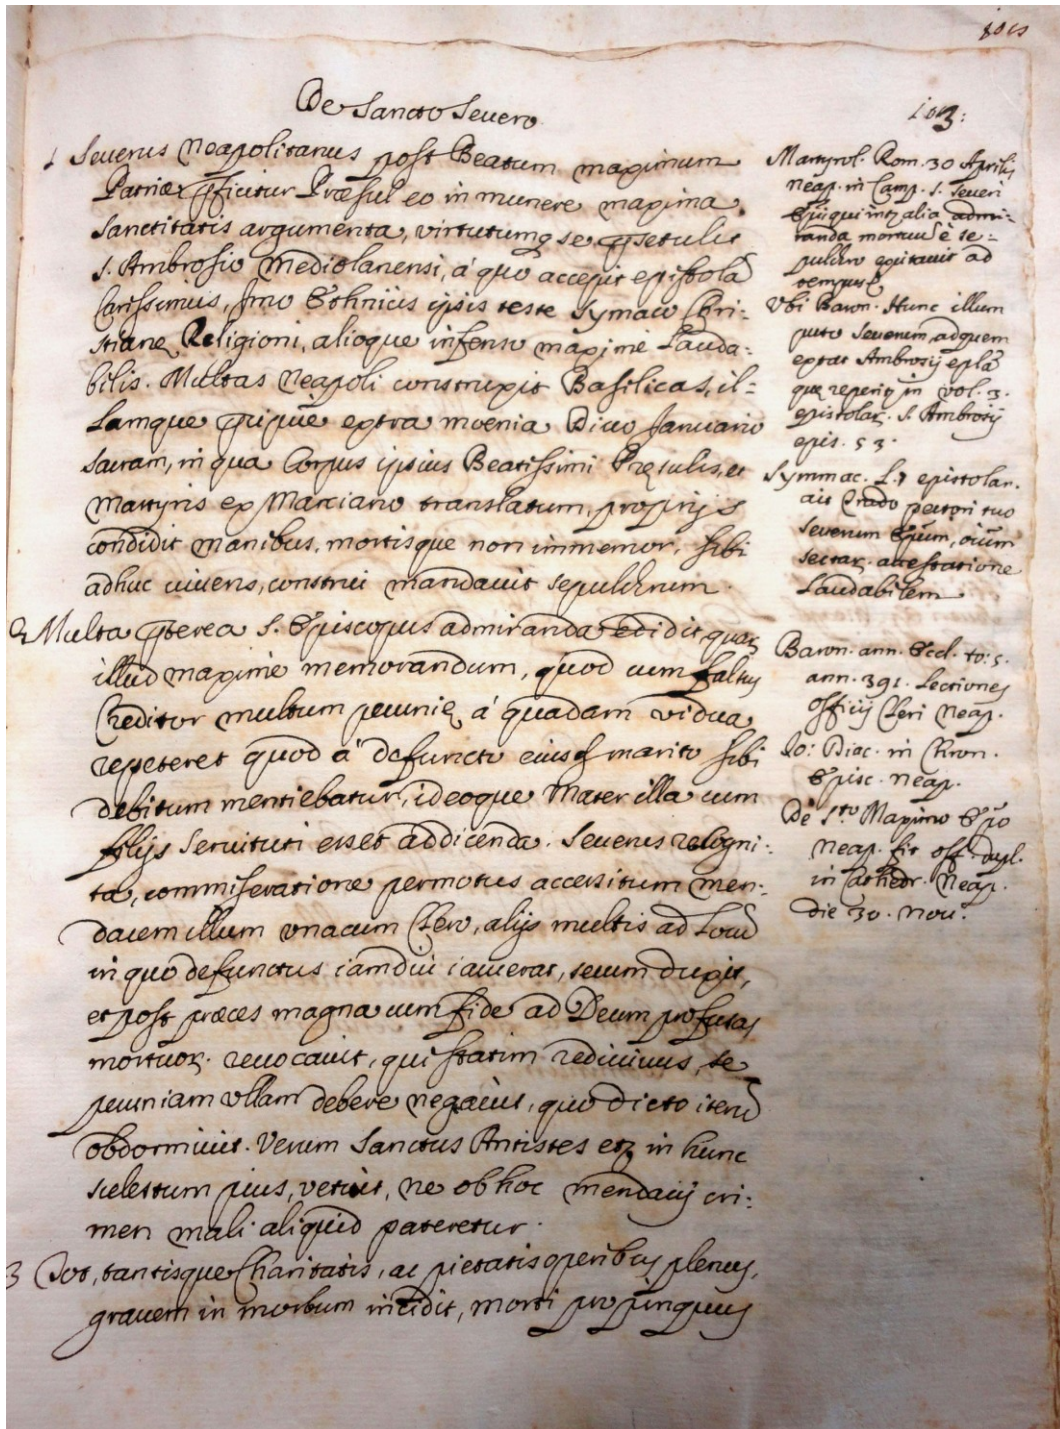 De Sancto Severo
103:
1 Severus Neapolitanus post Beatum maximum
Patriæ pficitur Præsul eo in munere maxima
Sanctitatis argumenta, virtutumq se psetulit
S. Ambrosio Mediolanensi, á quo accepit epistolã
Carissimus, Imo Ethnicis ipsis teste Symaco Chri-
stianę Religioni, alioque infenso maxime Lauda-
bilis. Multas Neapoli construxit Basilicas, il-
Lamque pripuè extra moenia Divo Januario
sacram, in qua Corpus ipsius Beatissimi Præsulis, et
Martyris ex Marciano translatum, proprijs
condidit manibus, mortisque non immemor, sibi
adhuc vivens, construi mandavit sepulchrum.
2 Multa pterea S. Episcopus admiranda edidit quaꝝ
illud maxime memorandum, quod cum falsus
Creditor multum pecunię á quadam vidua
repeteret quod á defuncto eiusd marito sibi
debitum mentiebatur, ideoque Mater illa cum
filijs servituti esset addicenda. Severus re cogni-
ta, commiseratione permotus accersitum men-
dacem illum vnacum Clero, alijs multis ad Locũ
in quo defunctus iamdiu iacuerat, secum duxit,
et post præces magna cum fide ad Deum profusas
mortuoꝝ. revocavit, qui statim redivivus, se
pecuniam vllam debere negavit, quo dicto iterũ
obdormivit. Verum Sanctus Antistes etꝫ in hunc
scelestum pius, vetuit, ne ob hoc mendacij cri-
men mali aliquid pateretur.
3 Tot, tantisque Charitatis, ac pietatis operibus plenus,
gravem in morbum incidit, morti propinquus
Martyrol. Rom. 30 Aprilis
Neap. in Camp. S. Severi
Epi qui intꝫ alia admi-
randa mortuũ è se-
pulchro excitavit ad
tempus
Vbi Baron. Hunc illum
puto Severum, ad quem
extat Ambrosij eplã
quę reperitꝫ in vol. 3.
epistolaꝝ. S. Ambrosij
epis. 53.
Symmac. L. 7 epistolar.
ait Trado pectori tuo
Severum Epum, oium
sectaꝝ. attestatione
Laudabilem
Baron. ann. Eccl. to: 5.
ann. 391. Lectiones
officij Cleri Neap.
Io: Diac. in Chron.
Episc. Neap.
De S.to Maximo Epo
Neap. fit off. dupl.
in Cathedr. Neap.
die 30. Nov.